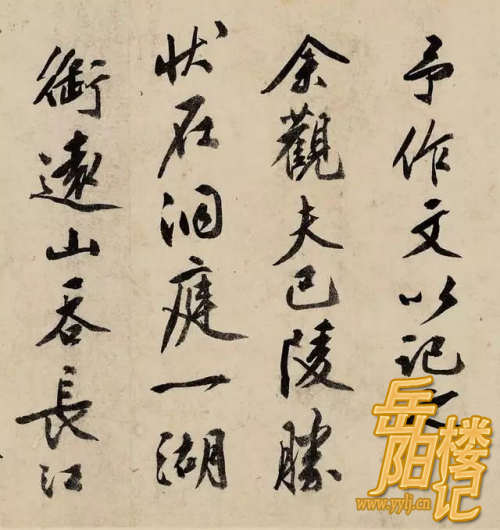 予作文以記之
余觀夫巴陵勝
状在洞庭一湖
銜遠山吞長江
岳阳楼记
www.yylj.cn